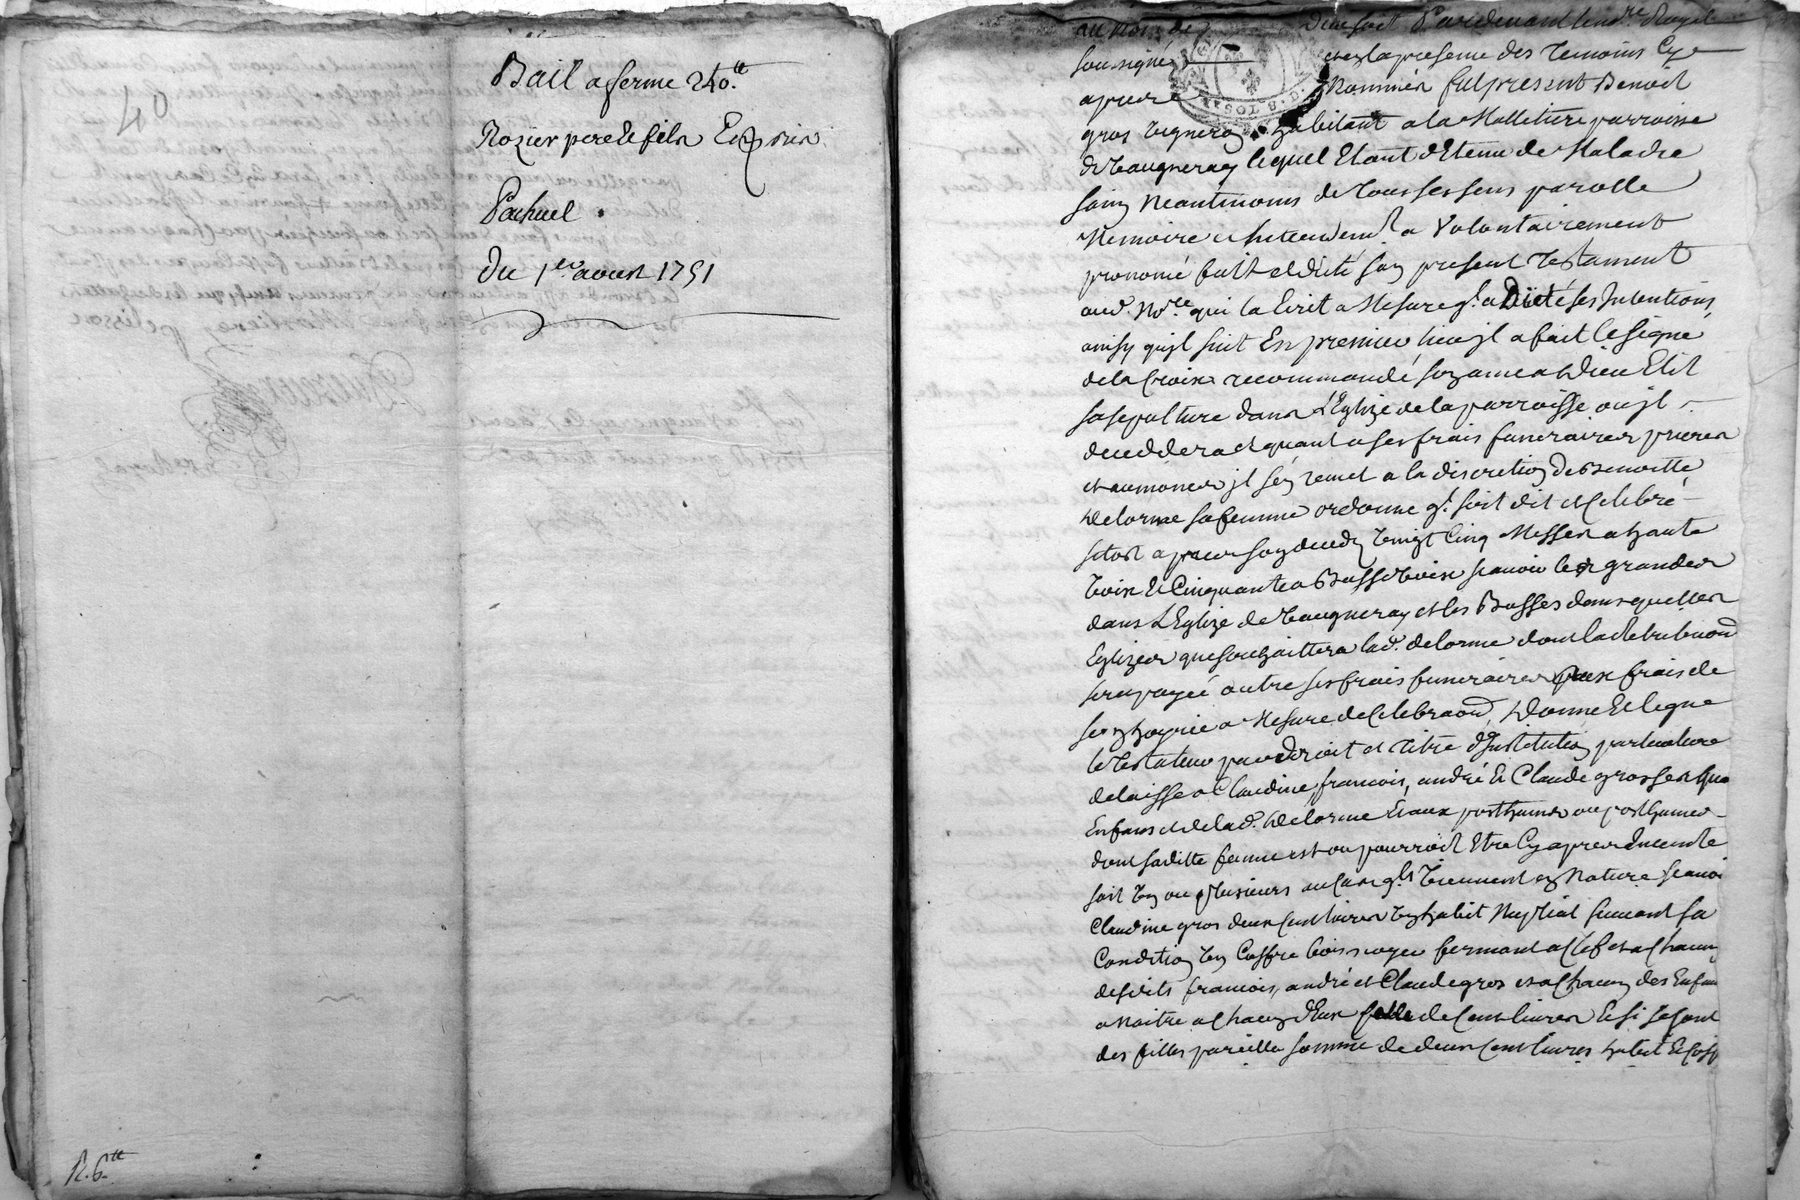 40
Bail a ferme 240.tt
Rozier pere et fils
Pachuel.
Du 1er aoust 1751
R. 6.tt
au Nom de Dieu soit Pardevant le nore Royal
soussigné et en la presence des temoins Cy
apres Nommés fut present Benoit
gros vigneron habitant a la Malletiere parroisse
de Vaugneray lequel Etant detenu de Maladie
sain Neantmoins de tous ses sens parolle
Memoire et Entendemt a Volontairement
prononcé fait et dicté son present testament
aud. Nore qui la Ecrit a Mesure ql. a Dicté ses Intentions
ainsy quil suit En premier lieu jl a fait le signe
de la Croix recommandé son ame a Dieu Elit
sa sepulture dans L'Eglize de la parroisse ou jl
deceddera et quant a ses frais funeraires prieres
et aumones jl s'en remet a la discretion de Benoitte
Delorme sa femme ordonne ql. soit dit et Celebré
sitost apres son deceds vingt Cinq Messes a haute
voix et Cinquante a Basse voix scavoir les grandes
dans L'Eglize de Vaugneray et les Basses dans quelles
Eglizes que souhaittera lad. delorme dont la retribuon
sera payée outre ses frais funeraires aux frais de
son hoyrie a Mesure de Celebraon, Donne et legue
le testateur par droit et titre d'Institution particuliere
delaisse a Claudine, francois, andré et Claude gros ses
Enfans et de lad. Delorme Et aux posthumes ou posthumes
dont saditte femme est ou pourroit Etre Cy apres Enceinte
soit un ou plusieurs au Cas qls viennent en Nature scavoir
Claudine gros deux Cent livres un habit Nuptial suivant sa
Condition un Coffre bois noyer fermant a Clef et a Chacun
desdits francois, andré et Claude gros et a Chacun des Enfans
a naitre a Chacun d'Eux de Cent livres et si se sont
des filles pareille somme de deux Cent livres habit et Coff